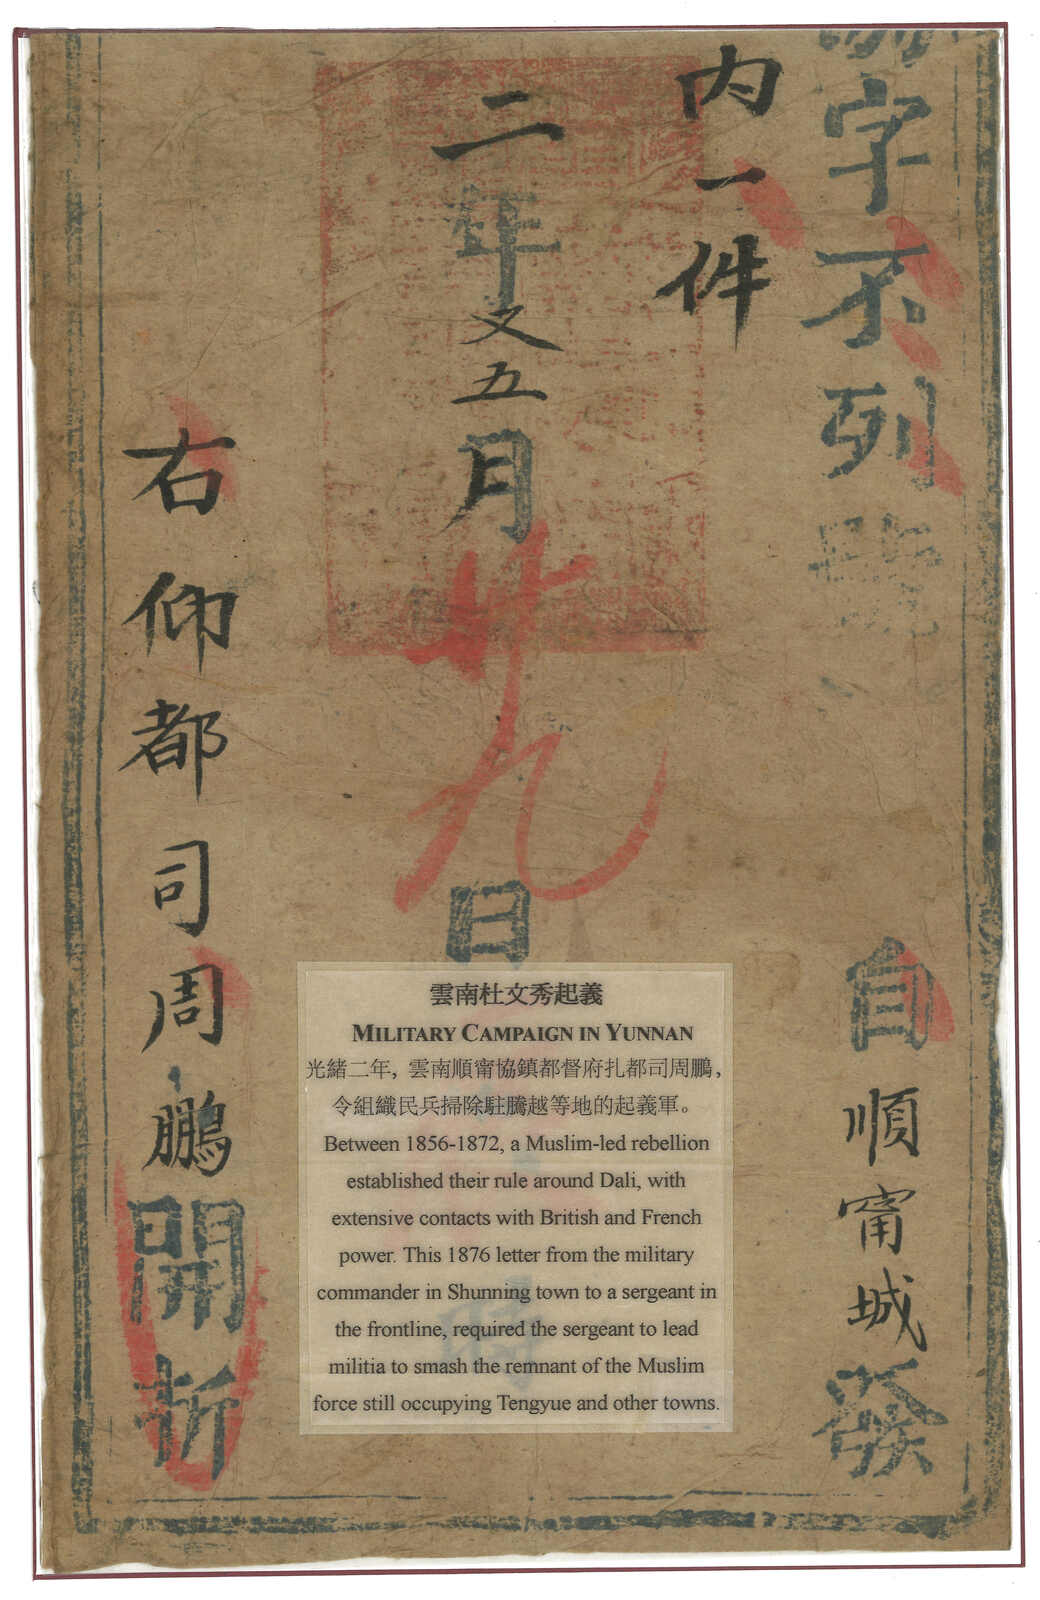 字不列號
內一件
自順甯城發
二年又五月廿九日
右仰都司周鵬開拆
雲南杜文秀起義
MILITARY CAMPAIGN IN YUNNAN
光緒二年，雲南順甯協鎮都督府扎都司周鵬，
令組織民兵掃除駐騰越等地的起義軍。
Between 1856-1872, a Muslim-led rebellion
established their rule around Dali, with
extensive contacts with British and French
power. This 1876 letter from the military
commander in Shunning town to a sergeant in
the frontline, required the sergeant to lead
militia to smash the remnant of the Muslim
force still occupying Tengyue and other towns.